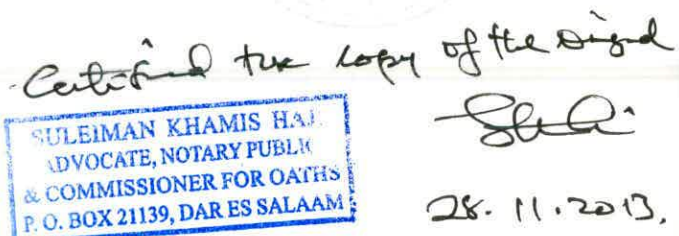 Certified true copy of the
SULEIMAN KHAMIS HAJ
ADVOCATE, NOTARY PUBLIC
& COMMISSIONER FOR OATHS
P. O. BOX 21139, DAR ES SALAAM
28. 11. 2013.